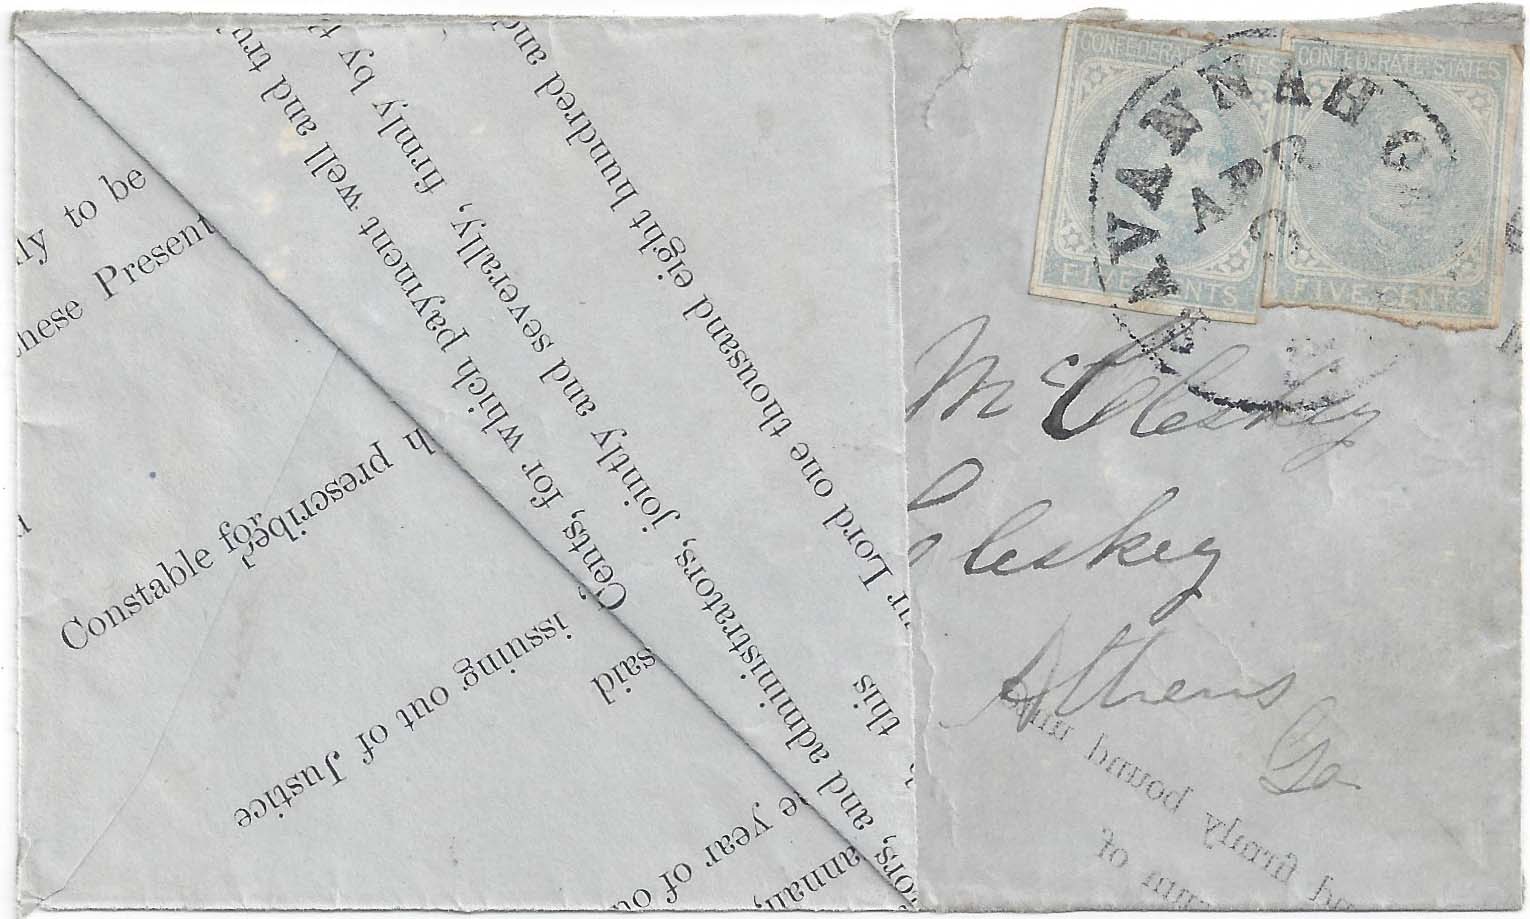 ly to be
hese Present
Constable for
h prescribed
issuing out of Justice
said
and tru
Cents, for which payment well and
ors, and administrators, jointly and severally, firmly by t
this
ur Lord one thousand eight hundred and
e year of ou
annah,
CONFEDERATE STATES
FIVE CENTS
CONFEDERATE STATES
FIVE CENTS
SAVANNAH G
APR
McCleskey
Cleskey
Athens
Ga
firmly bound un
of